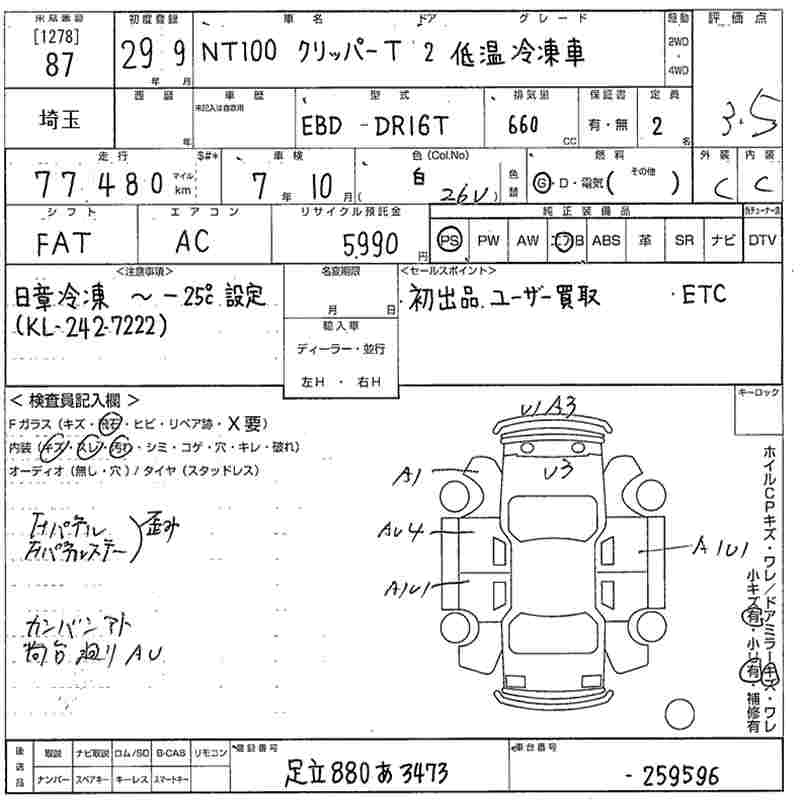 来場番号 初度登録 車名 ドア グレード 駆動 評価点
[1278] 87 29年 9月 NT100 クリッパーT 2 低温冷凍車 2WD・4WD 3.5
西暦 車歴 型式 排気量 保証書 定員
埼玉 年 未記入は自家用 EBD -DR16T 660 CC 有・無 2名
走行 $#* 車検 色(Col.No) 色替 燃料 外装 内装
77480 マイル km 7年 10月 白 26U G・D・電気(その他) C C
シフト エアコン リサイクル預託金 純正装備品
FAT AC 5,990円 PS PW AW エアB ABS 革 SR ナビ DTV
<注意事項> 名変期限 <セールスポイント>
日章冷凍 ~ -25℃ 設定
(KL-242-7222)
月 日
初出品、ユーザー買取 ・ETC
輸入車
ディーラー・並行
左H ・ 右H
< 検査員記入欄 >
キーロック
Fガラス (キズ・飛石・ヒビ・リペア跡・X要)
内装 (キズ・スレ・汚れ・シミ・コゲ・穴・キレ・破れ)
オーディオ (無し・穴) / タイヤ (スタッドレス)
U1 A3
U3
A1
AU4
A1U1
A1U1
歪み
カンバンアト
荷台廻り AU
ホイルCPキズ・ワレ/ドアミラーキズ・ワレ
小キズ有・小U有・補修有
後送品 取説 ナビ取説 ロム/SD B-CAS リモコン 登録番号 車台番号
ナンバー スペアキー キーレス スマートキー 足立880あ3473 -259596